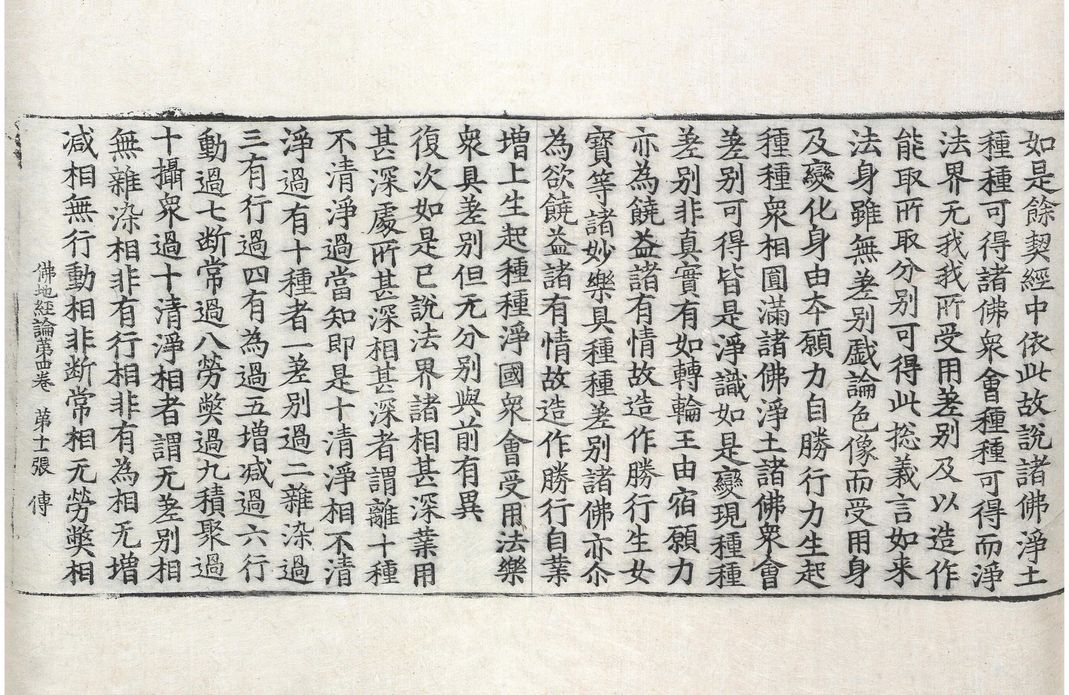 如是餘契經中依此故說諸佛淨土
種種可得諸佛衆會種種可得而淨
法界无我我所受用差别及以造作
能取所取分别可得此捴義言如来
法身雖無差别戱論色像而受用身
及變化身由夲願力自勝行力生起
種種衆相圓滿諸佛淨土諸佛衆會
差别可得皆是淨識如是變現種種
差别非真實有如轉輪王由宿願力
亦為饒益諸有情故造作勝行生女
寳等諸妙樂具種種差别諸佛亦尒
為欲饒益諸有情故造作勝行自葉
增上生起種種淨國衆會受用法樂
衆具差别但无分别與前有異
復次如是已說法界諸相甚深葉用
甚深處所甚深相甚深者謂離十種
不清淨過當知即是十清淨相不清
淨過有十種者一差别過二雜染過
三有行過四有為過五增減過六行
動過七断常過八勞獘過九積聚過
十攝衆過十清淨相者謂无差别相
無雜染相非有行相非有為相无增
減相無行動相非断常相无勞獘相
佛地經論第四卷 第十一張 傳